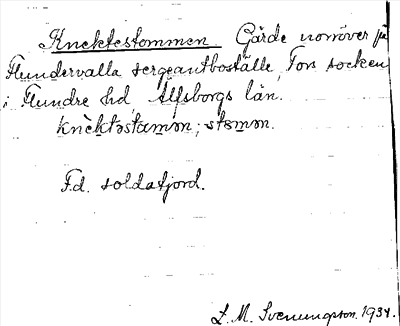 Knektestommen Gärde norröver på
Flundervalla sergeantboställe, Fors socken
i Flundre hd, Älfsborgs län.
knèktəstamən, -stomən.
F.d. soldatjord.
L. M. Svenungsson. 1934.